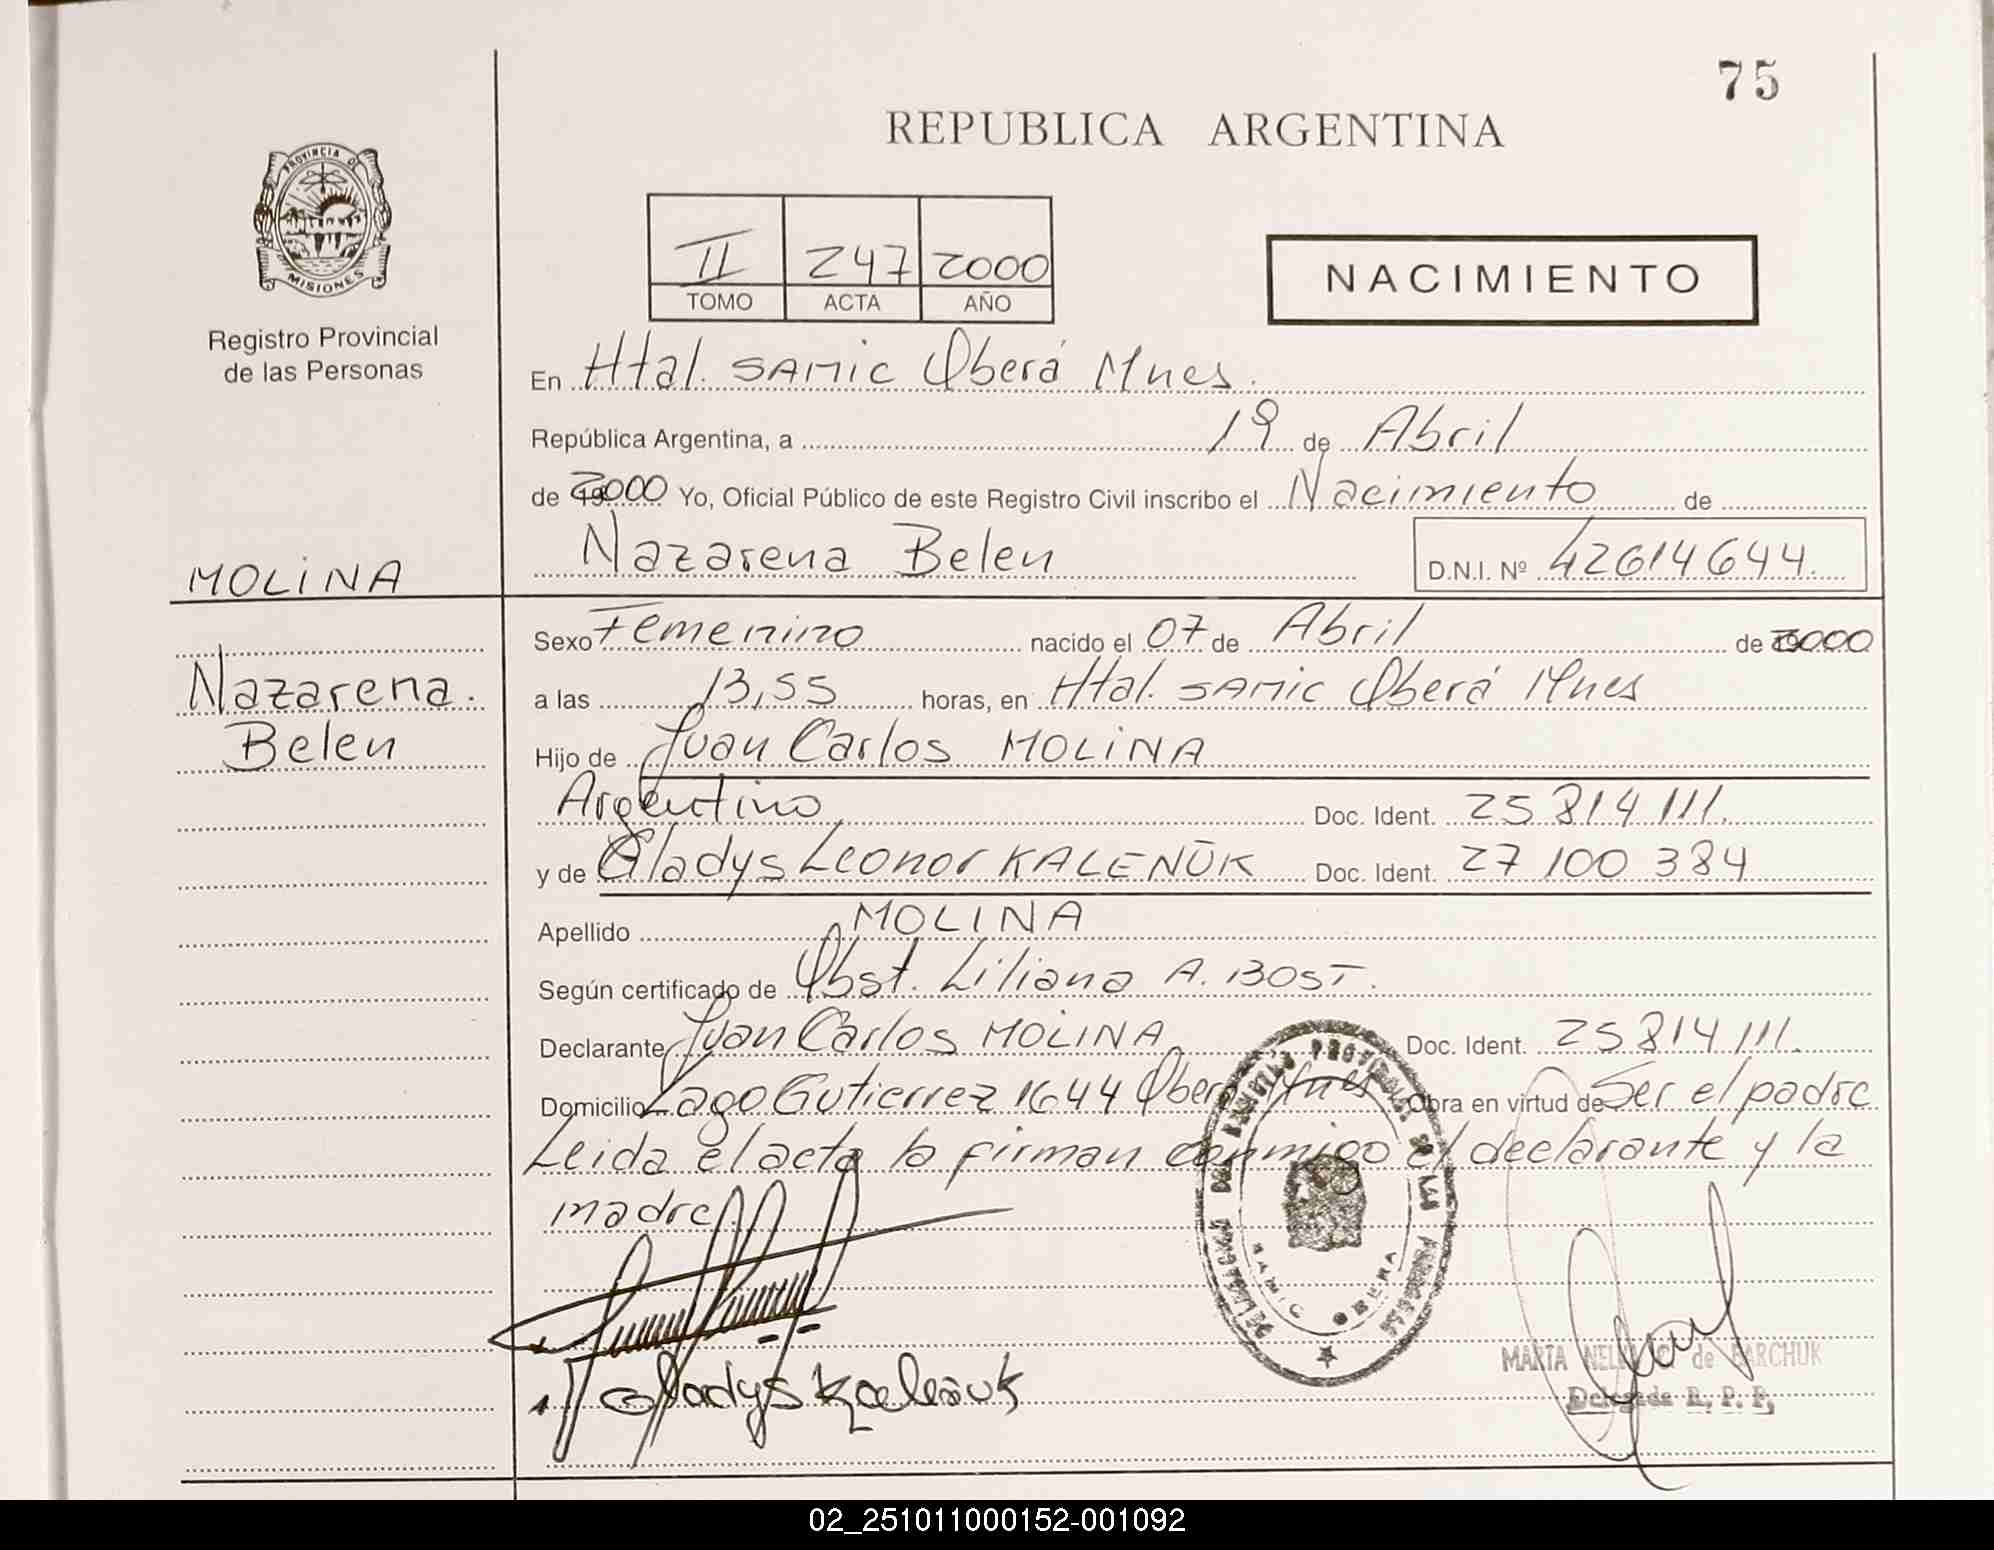 75
REPUBLICA ARGENTINA
PROVINCIA DE
MISIONES
Registro Provincial
de las Personas
II 247 2000
TOMO ACTA AÑO
NACIMIENTO
En Htal. SAMIC Oberá Mnes.
República Argentina, a 19 de Abril
de 2000 Yo, Oficial Público de este Registro Civil inscribo el Nacimiento de
Nazarena Belen D.N.I. Nº 42614644.
MOLINA
Nazarena.
Belen
Sexo Femenino nacido el 07 de Abril de 2000
a las 13,55 horas, en Htal. SAMIC Oberá Mnes
Hijo de Juan Carlos MOLINA
Argentino Doc. Ident. 25 814 111.
y de Gladys Leonor KALENUK Doc. Ident. 27 100 384
Apellido MOLINA
Según certificado de Obst. Liliana A. BOST.
Declarante Juan Carlos MOLINA Doc. Ident. 25 814 111.
Domicilio Lago Gutierrez 1644 Oberá Mnes Obra en virtud de Ser el padre
Leida el acta la firman conmigo el declarante y la
madre
DELEGACION DEL REGISTRO PROVINCIAL DE LAS PERSONAS
SAMIC OBERA
Gladys Kalenuk
MARTA de BARCHUK
Delegada R. P. P.
02_251011000152-001092